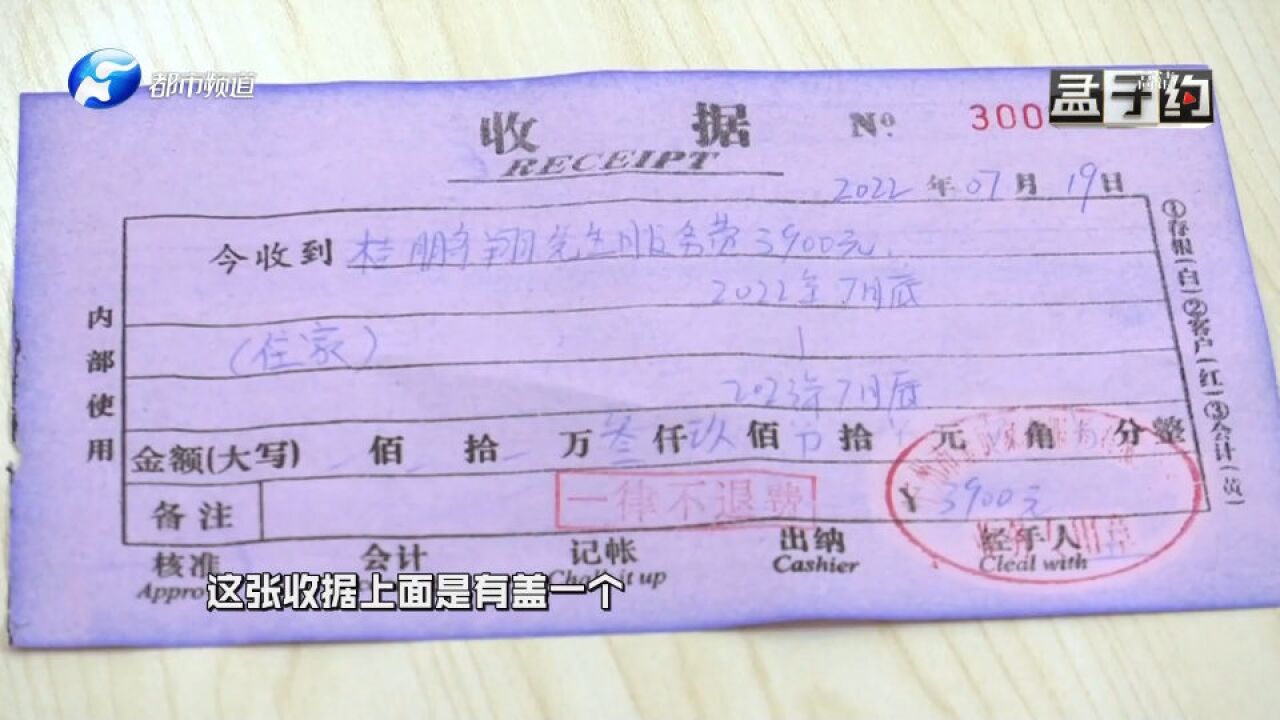 都市频道
孟子约
收据
RECEIPT
Nº 300
2022年07月19日
今收到 桂鹏翔先生服务费3900元.
2022年7月底
(住家)
2023年7月底
金额(大写) 佰 拾 万 叁 仟 玖 佰 拾 元 角 分 整
¥ 3900元
备注
一律不退费
核准 会计 记帐 出纳 经手人
Cashier Cleal with
内部使用
①存根(白)②客户(红)③会计(黄)
这张收据上面是有盖一个